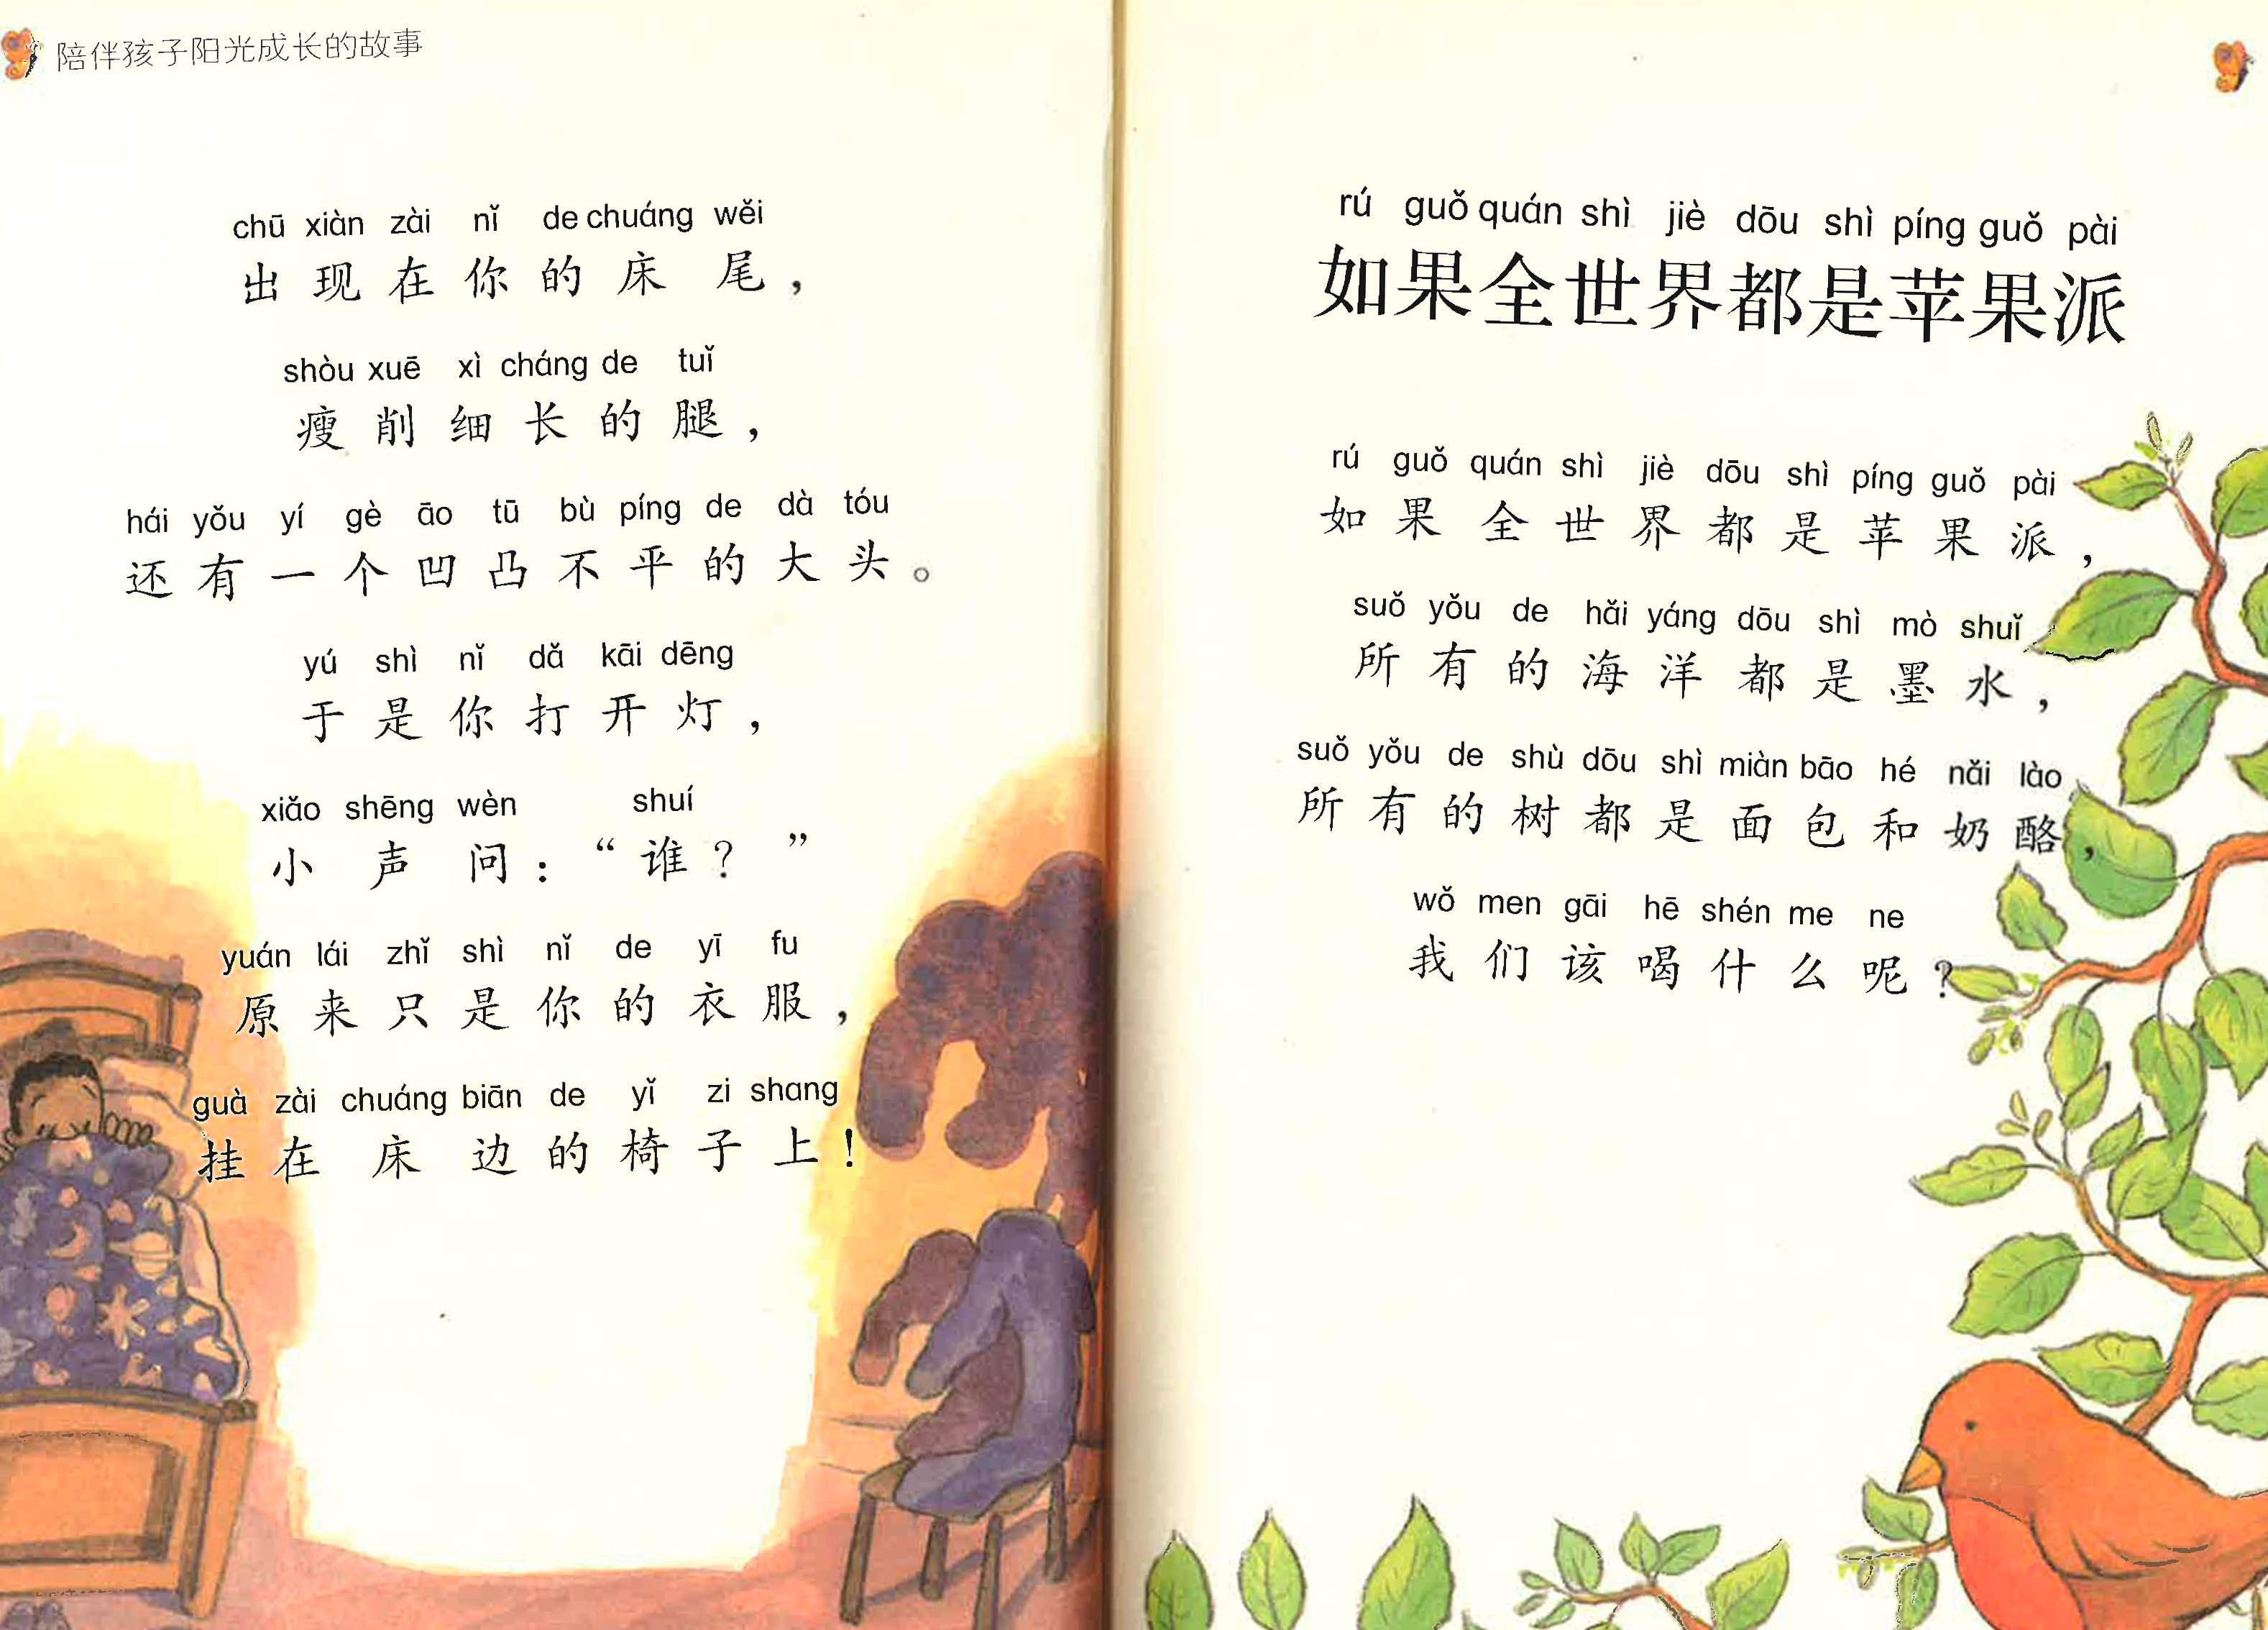 陪伴孩子阳光成长的故事
chū xiàn zài nǐ de chuáng wěi
出现在你的床尾，
shòu xuē xì cháng de tuǐ
瘦削细长的腿，
hái yǒu yí gè āo tū bù píng de dà tóu
还有一个凹凸不平的大头。
yú shì nǐ dǎ kāi dēng
于是你打开灯，
xiǎo shēng wèn shuí
小声问：“谁？”
yuán lái zhǐ shì nǐ de yī fu
原来只是你的衣服，
guà zài chuáng biān de yǐ zi shang
挂在床边的椅子上！
rú guǒ quán shì jiè dōu shì píng guǒ pài
如果全世界都是苹果派
rú guǒ quán shì jiè dōu shì píng guǒ pài
如果全世界都是苹果派，
suǒ yǒu de hǎi yáng dōu shì mò shuǐ
所有的海洋都是墨水，
suǒ yǒu de shù dōu shì miàn bāo hé nǎi lào
所有的树都是面包和奶酪，
wǒ men gāi hē shén me ne
我们该喝什么呢？